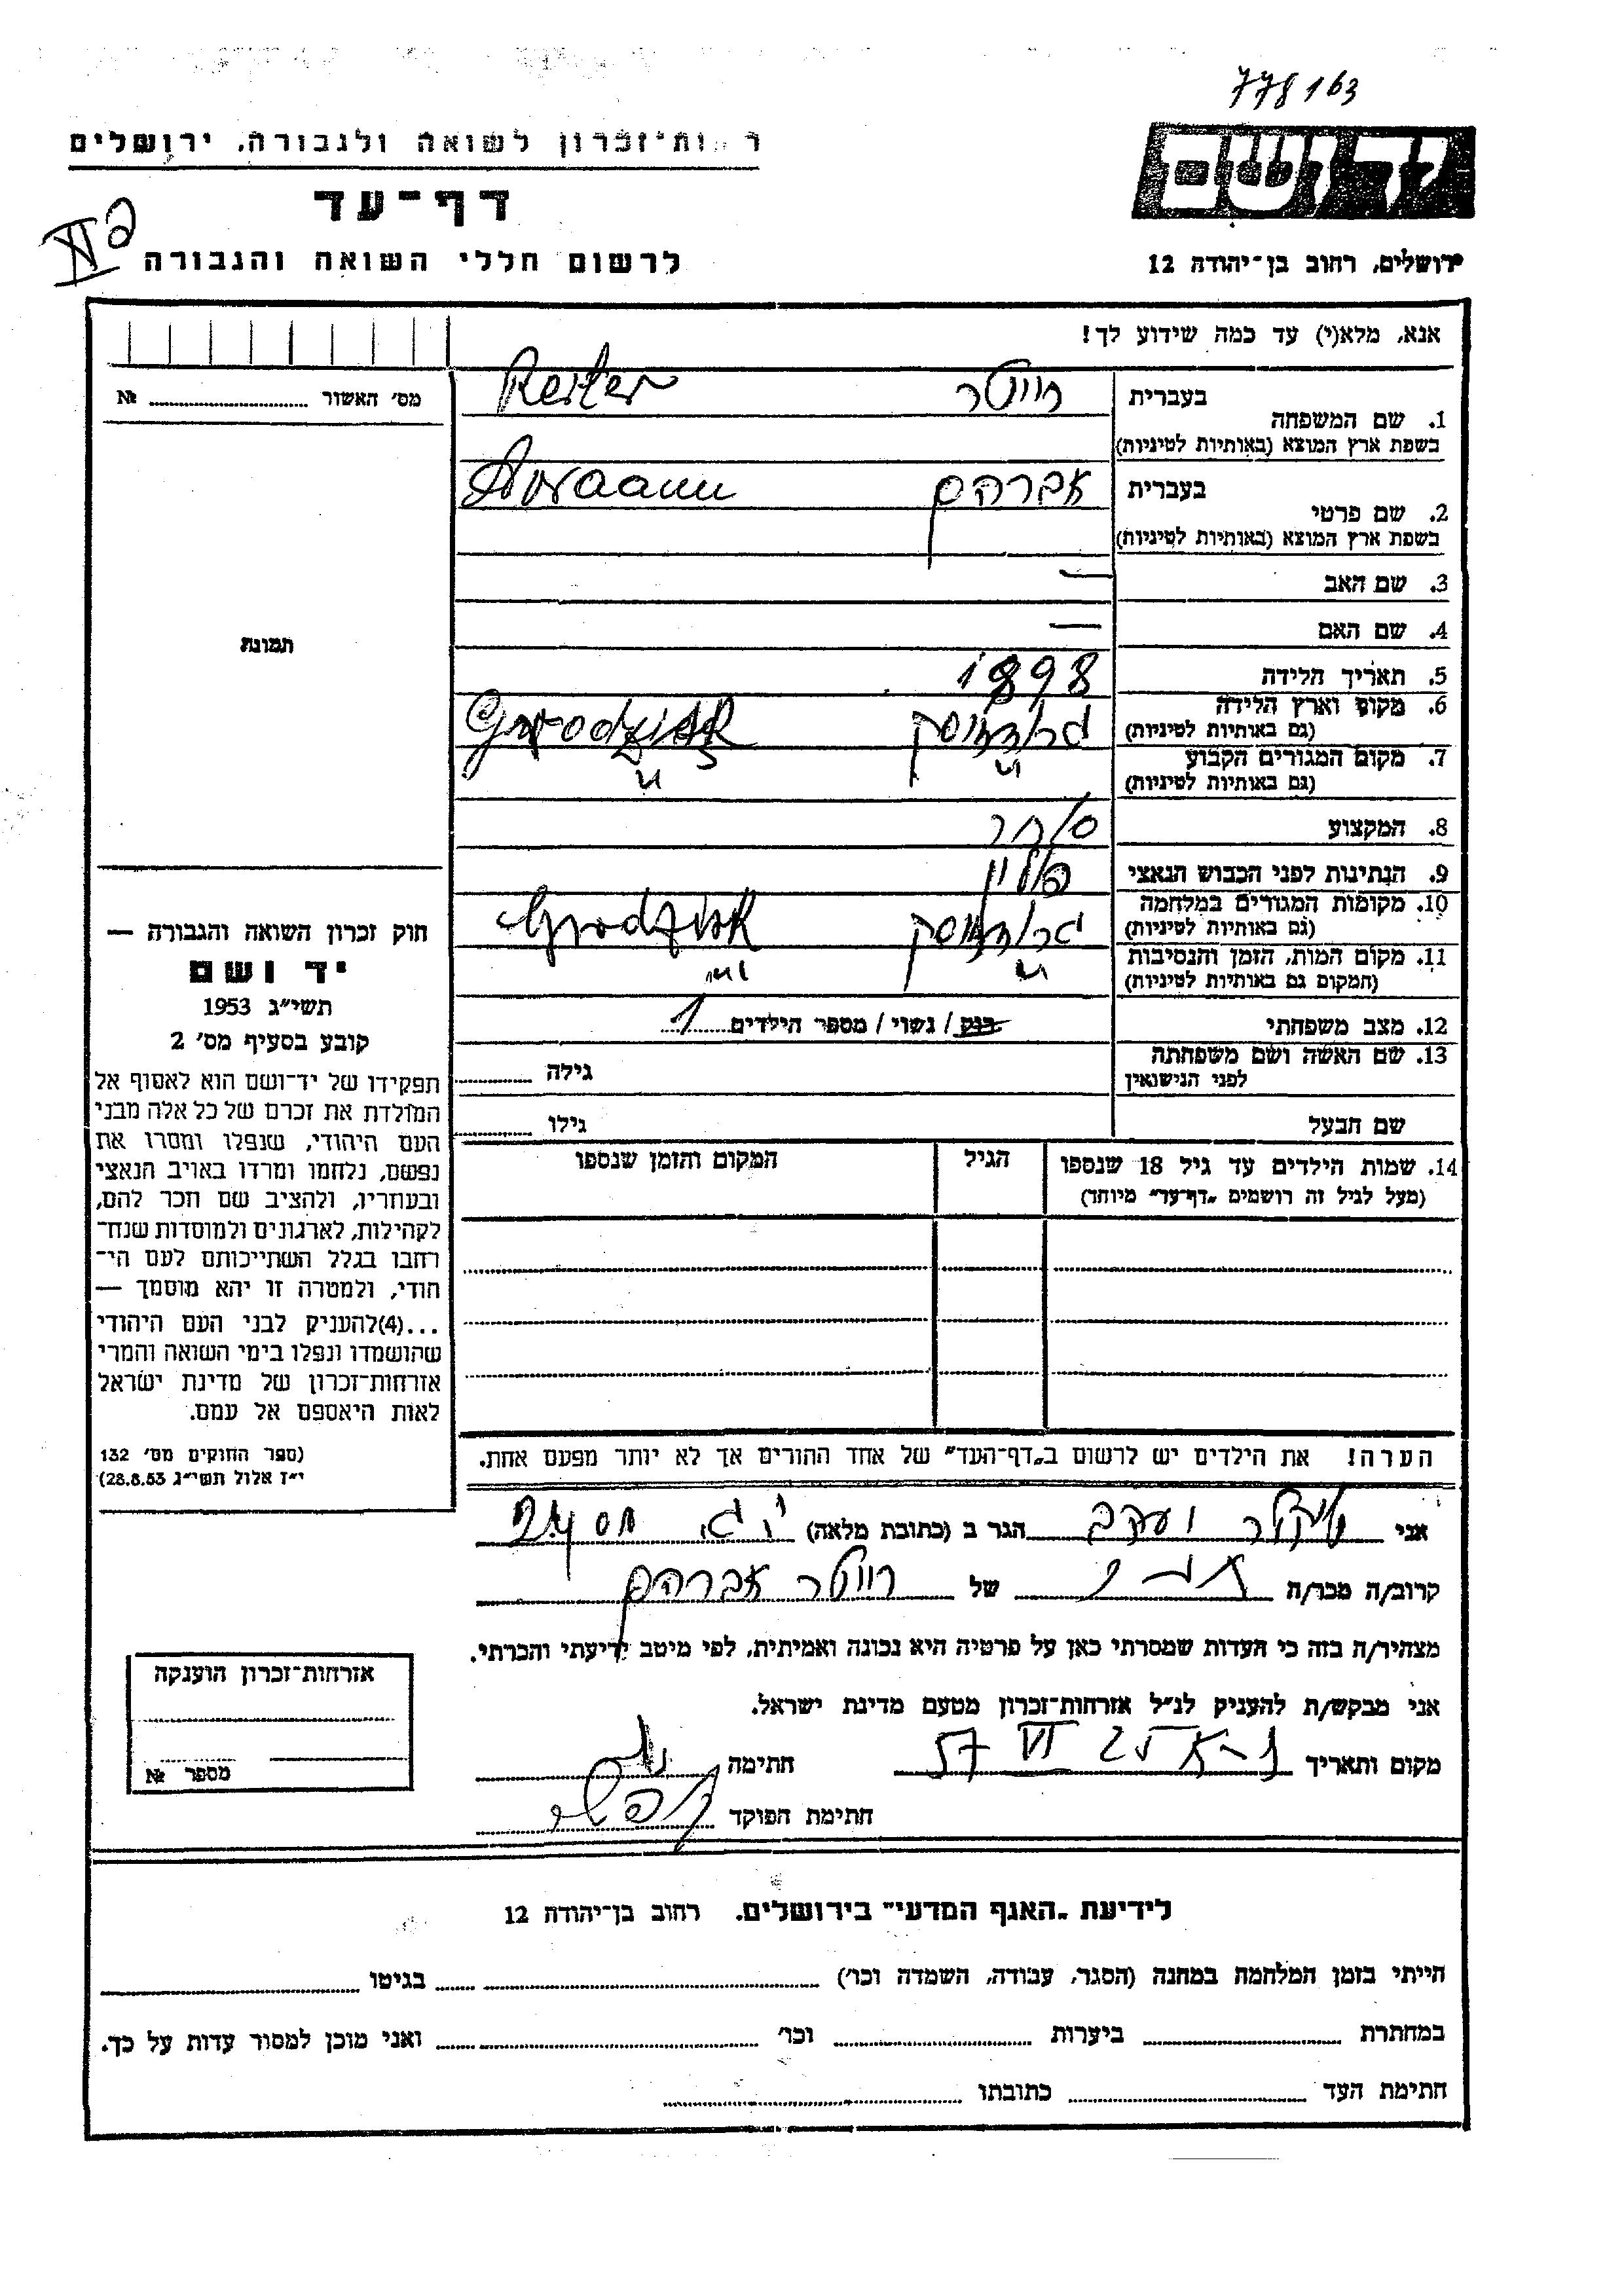 778163
ר ות־זכרון לשואה ולגבורה, ירושלים
יד ושם
דף־עד
לרשום חללי השואה והגבורה
ירושלים, רחוב בן־יהודה 12
אנא, מלא(י) עד כמה שידוע לך!
מס' האשור № ........
בעברית רייטר Reiter
1. שם המשפחה
בשפת ארץ המוצא (באותיות לטיניות)
בעברית אברהם Avraam
2. שם פרטי
בשפת ארץ המוצא (באותיות לטיניות)
3. שם האב —
4. שם האם —
תמונה
5. תאריך הלידה 1898
6. מקום וארץ הלידה גרודזיסק Grodzisk
(גם באותיות לטיניות)
7. מקום המגורים הקבוע " "
(גם באותיות לטיניות)
8. המקצוע סוחר
9. הנתינות לפני הכבוש הנאצי פולין
10. מקומות המגורים במלחמה גרודזיסק Grodzisk
(גם באותיות לטיניות)
11. מקום המות, הזמן והנסיבות " "
(המקום גם באותיות לטיניות)
12. מצב משפחתי רווק / נשוי / מספר הילדים 1
13. שם האשה ושם משפחתה
לפני הנישואין
גילה ........
שם הבעל גילו ........
14. שמות הילדים עד גיל 18 שנספו הגיל המקום והזמן שנספו
(מעל לגיל זה רושמים "דף־עד" מיוחד)
חוק זכרון השואה והגבורה —
יד ושם
תשי"ג 1953
קובע בסעיף מס' 2
תפקידו של יד־ושם הוא לאסוף אל
המולדת את זכרם של כל אלה מבני
העם היהודי, שנפלו ומסרו את
נפשם, נלחמו ומרדו באויב הנאצי
ובעוזריו, ולהציב שם וזכר להם,
לקהילות, לארגונים ולמוסדות שנח־
רבו בגלל השתייכותם לעם הי־
הודי, ולמטרה זו יהא מוסמך —
...(4)להעניק לבני העם היהודי
שהושמדו ונפלו בימי השואה והמרי
אזרחות־זכרון של מדינת ישראל
לאות היאספם אל עמם.
(ספר החוקים מס' 132
י"ז אלול תשי"ג 28.8.53)
הערה! את הילדים יש לרשום ב"דף־העד" של אחד ההורים אך לא יותר מפעם אחת.
אני יעקב הגר ב (כתובת מלאה)
קרוב/ה מכר/ה של רייטר אברהם
מצהיר/ה בזה כי העדות שמסרתי כאן על פרטיה היא נכונה ואמיתית, לפי מיטב ידיעתי והכרתי.
אני מבקש/ת להעניק לנ"ל אזרחות־זכרון מטעם מדינת ישראל.
מקום ותאריך ת-א 25 VI 57 חתימה
חתימת הפוקד
אזרחות־זכרון הוענקה
מספר №
לידיעת "האגף המדעי" בירושלים, רחוב בן־יהודה 12
הייתי בזמן המלחמה במחנה (הסגר, עבודה, השמדה וכו') ........ בגיטו ........
במחתרת ........ ביערות ........ וכו' ........ ואני מוכן למסור עדות על כך.
חתימת העד ........ כתובתו ........